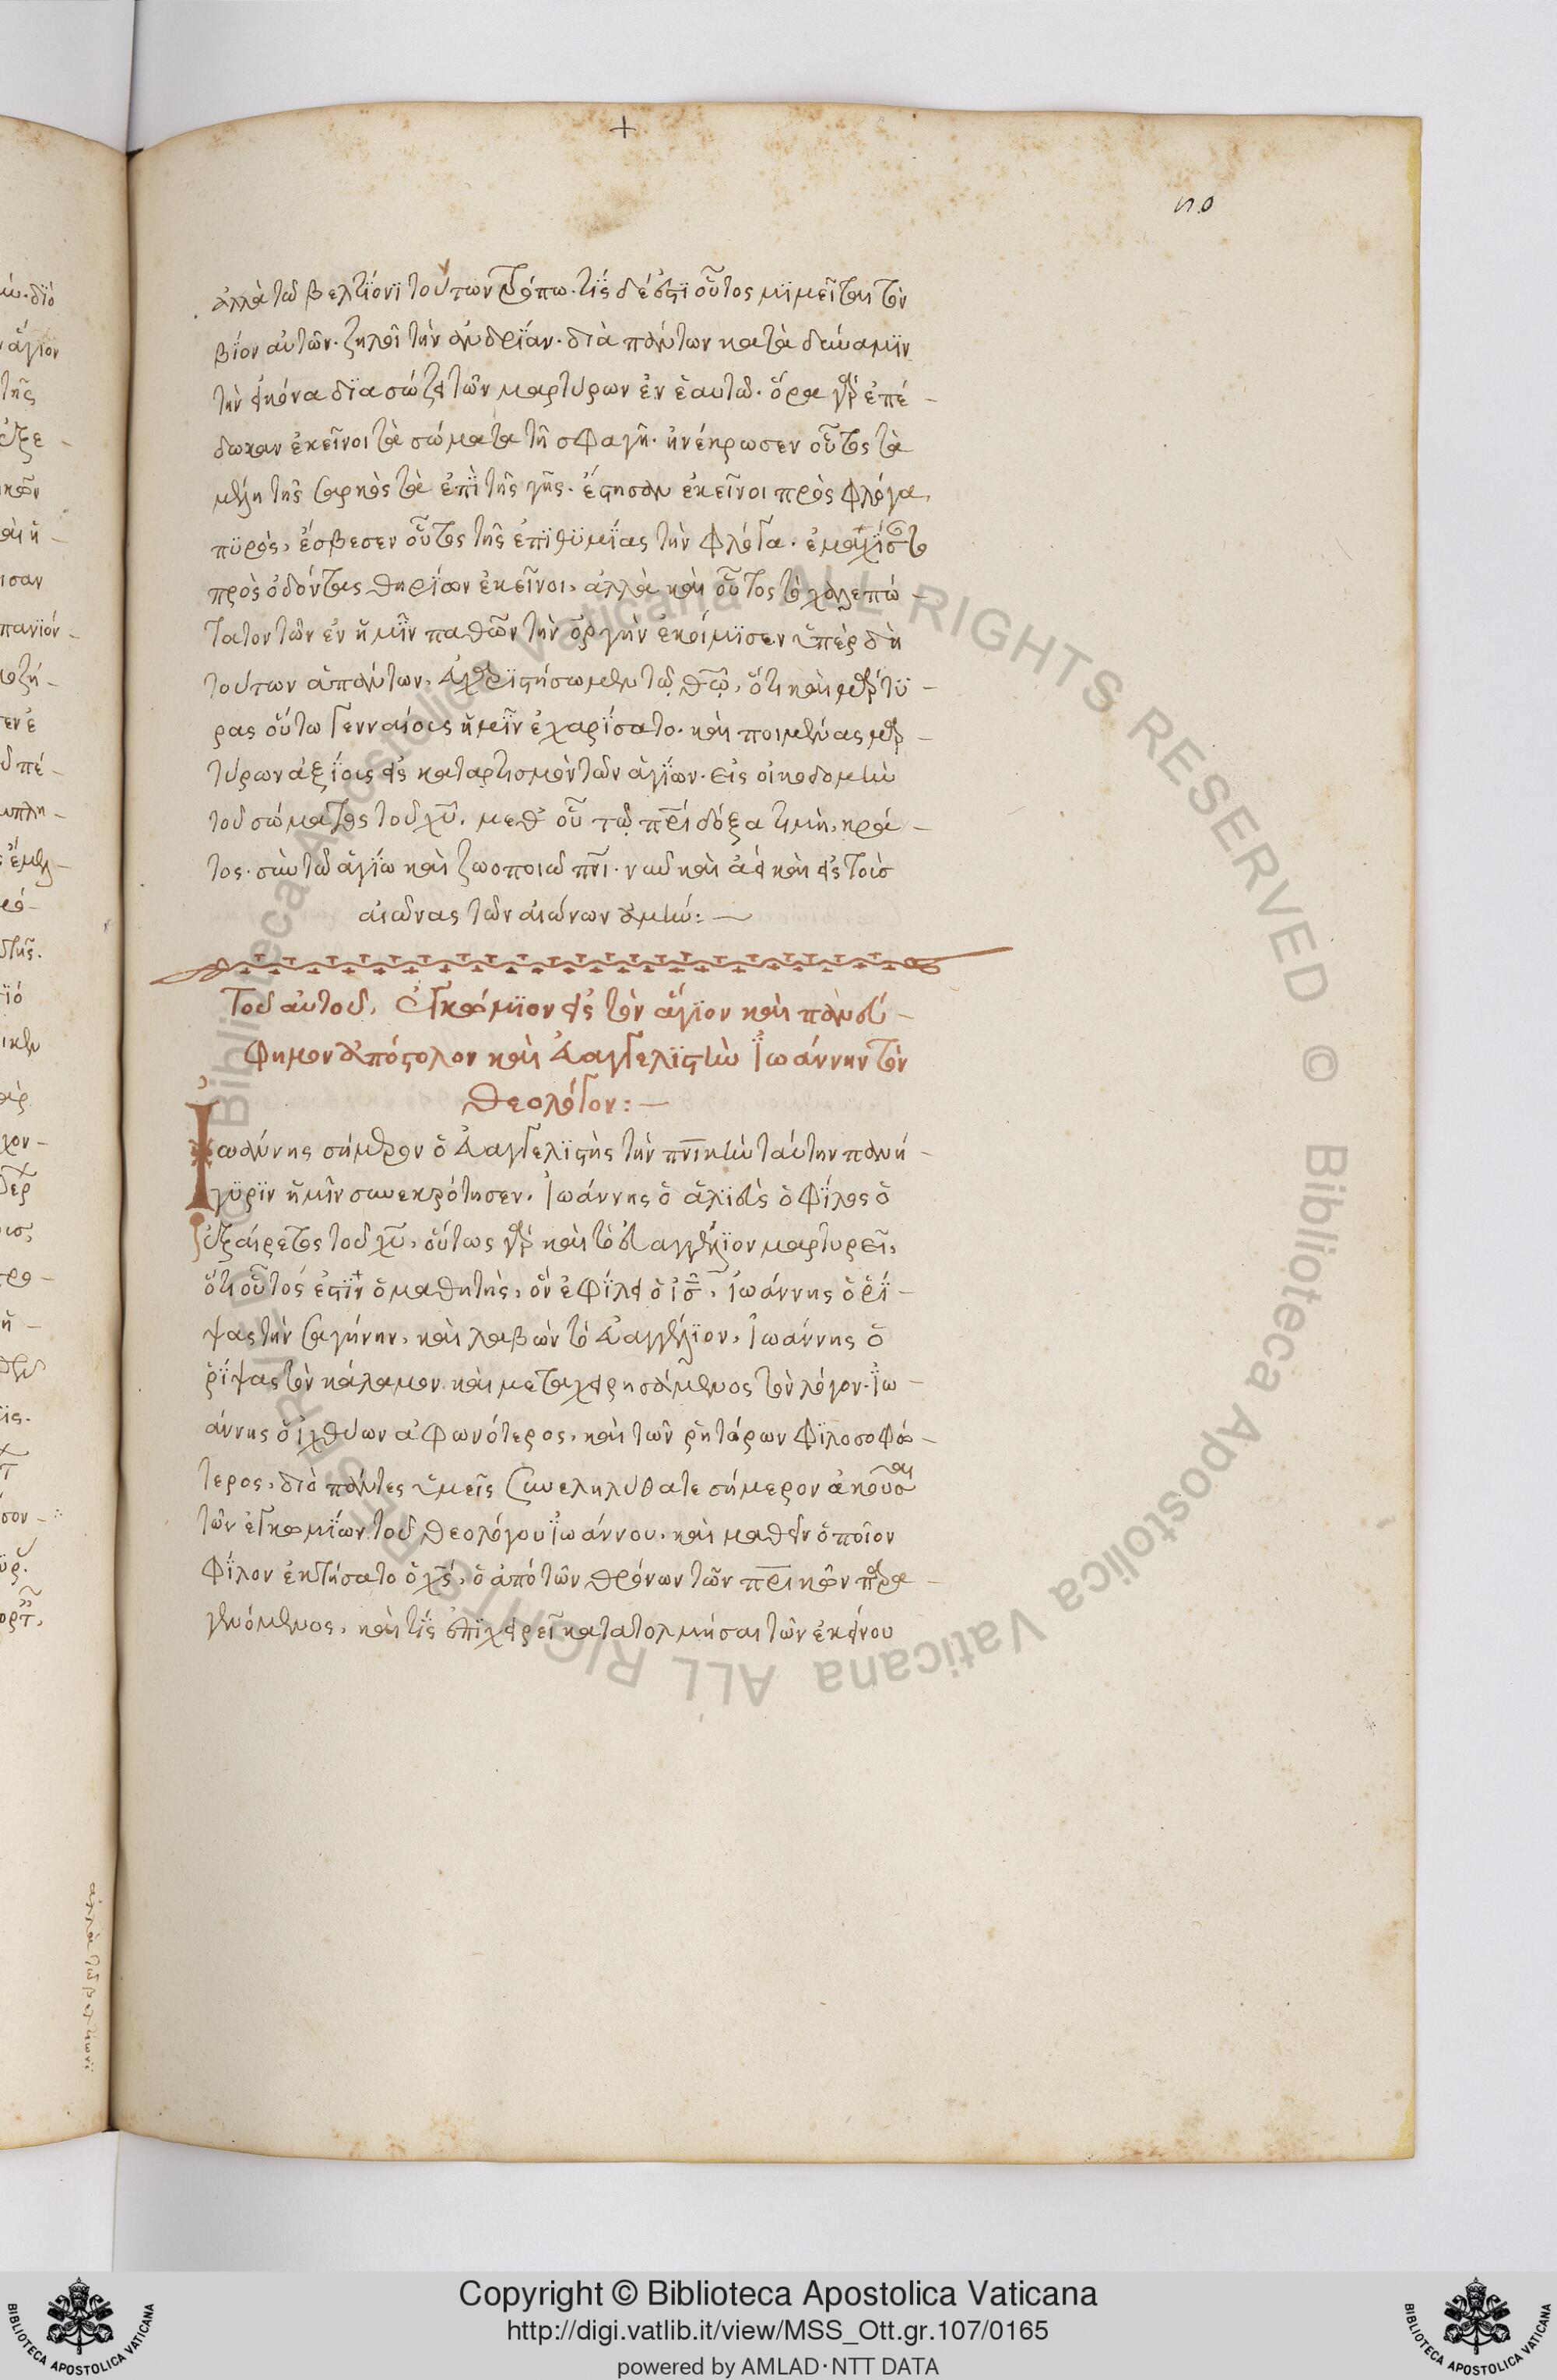 +
ἀλλὰ τῶ βελτίονι τούτων τρόπω. τίς δέ ἐστι οὗτος μιμεῖται τὸν
βίον αὐτῶν. ζηλοῖ τὴν ἀνδρίαν. διὰ πάντων κατὰ δύναμιν
τὴν εἰκόνα διασώζει τῶν μαρτύρων ἐν ἑαυτῶ. ὅρα γὰρ ἐπέ-
δωκαν ἐκεῖνοι τὰ σώματα τῆ σφαγῆ. ἠνέκρωσεν οὗτος τὰ
μέλη τῆς σαρκὸς τὰ ἐπὶ τῆς γῆς. ἔστησαν ἐκεῖνοι πρὸς φλόγα
πυρὸς, ἔσβεσεν οὗτος τῆς ἐπιθυμίας τὴν φλόγα.
πρὸς ὀδόντας θηρίων ἐκεῖνοι, ἀλλὰ καὶ οὗτος τὸ χαλεπώ-
τατον τῶν ἐν ἡμῖν παθῶν τὴν ὀργὴν ἐκοίμισεν ὑπὲρ δὴ
τούτων ἁπάντων, εὐχαριστήσωμεν τῶ θῶ, ὅτι καὶ μάρτυ-
ρας οὕτω γενναίοις ἡμῖν ἐχαρίσατο. καὶ ποιμένας μαρ-
τύρων ἀξίοις εἰς καταρτισμὸν τῶν ἁγίων. εἰς οἰκοδομὴν
τοῦ σώματος τοῦ χυ, μεθ οὗ τῶ πρὶ δόξα τιμὴ, κρά-
τος. σὺν τῶ ἁγίω καὶ ζωοποιῶ πνι. νῦν καὶ ἀεὶ καὶ εἰς τοὺς
αἰῶνας τῶν αἰώνων ἀμήν: —
Τοῦ αὐτοῦ, ἐγκώμιον εἰς τὸν ἅγιον καὶ πανεύ-
φημον ἀπόστολον καὶ εὐαγγελιστὴν Ἰωάννην τὸν
θεολόγον: —
Ἰωάννης σήμερον ὁ εὐαγγελιστὴς τὴν πνικὴν ταύτην πανή-
γυριν ἡμῖν συνεκρότησεν. Ἰωάννης ὁ ἁλιεὺς ὁ φίλος ὁ
ἐξαίρετος τοῦ χυ, οὕτως γὰρ καὶ τὸ εὐαγγέλιον μαρτυρεῖ,
ὅτι οὗτός ἐστιν ὁ μαθητὴς, ὃν ἐφίλει ὁ ις, Ἰωάννης ὁ ῥί-
ψας τὴν σαγήνην, καὶ λαβὼν τὸ εὐαγγέλιον, Ἰωάννης ὁ
ῥίψας τὸν κάλαμον καὶ μεταχειρησάμενος τὸν λόγον. Ἰω-
άννης ὁ ἰχθύων ἀφωνότερος, καὶ τῶν ῥητόρων φιλοσοφώ-
τερος, διὸ πάντες ὑμεῖς συνεληλύθατε σήμερον ἀκοῦσαι
τῶν ἐγκωμίων τοῦ θεολόγου Ἰωάννου, καὶ μαθεῖν ὁποῖον
φίλον ἐκτήσατο ὁ χς, ὁ ἀπὸ τῶν θρόνων τῶν πρικῶν παρα-
γενόμενος, καὶ τίς ἐπιχειρεῖ κατατολμήσαι τῶν ἐκείνου
Copyright © Biblioteca Apostolica Vaticana
http://digi.vatlib.it/view/MSS_Ott.gr.107/0165
powered by AMLAD·NTT DATA